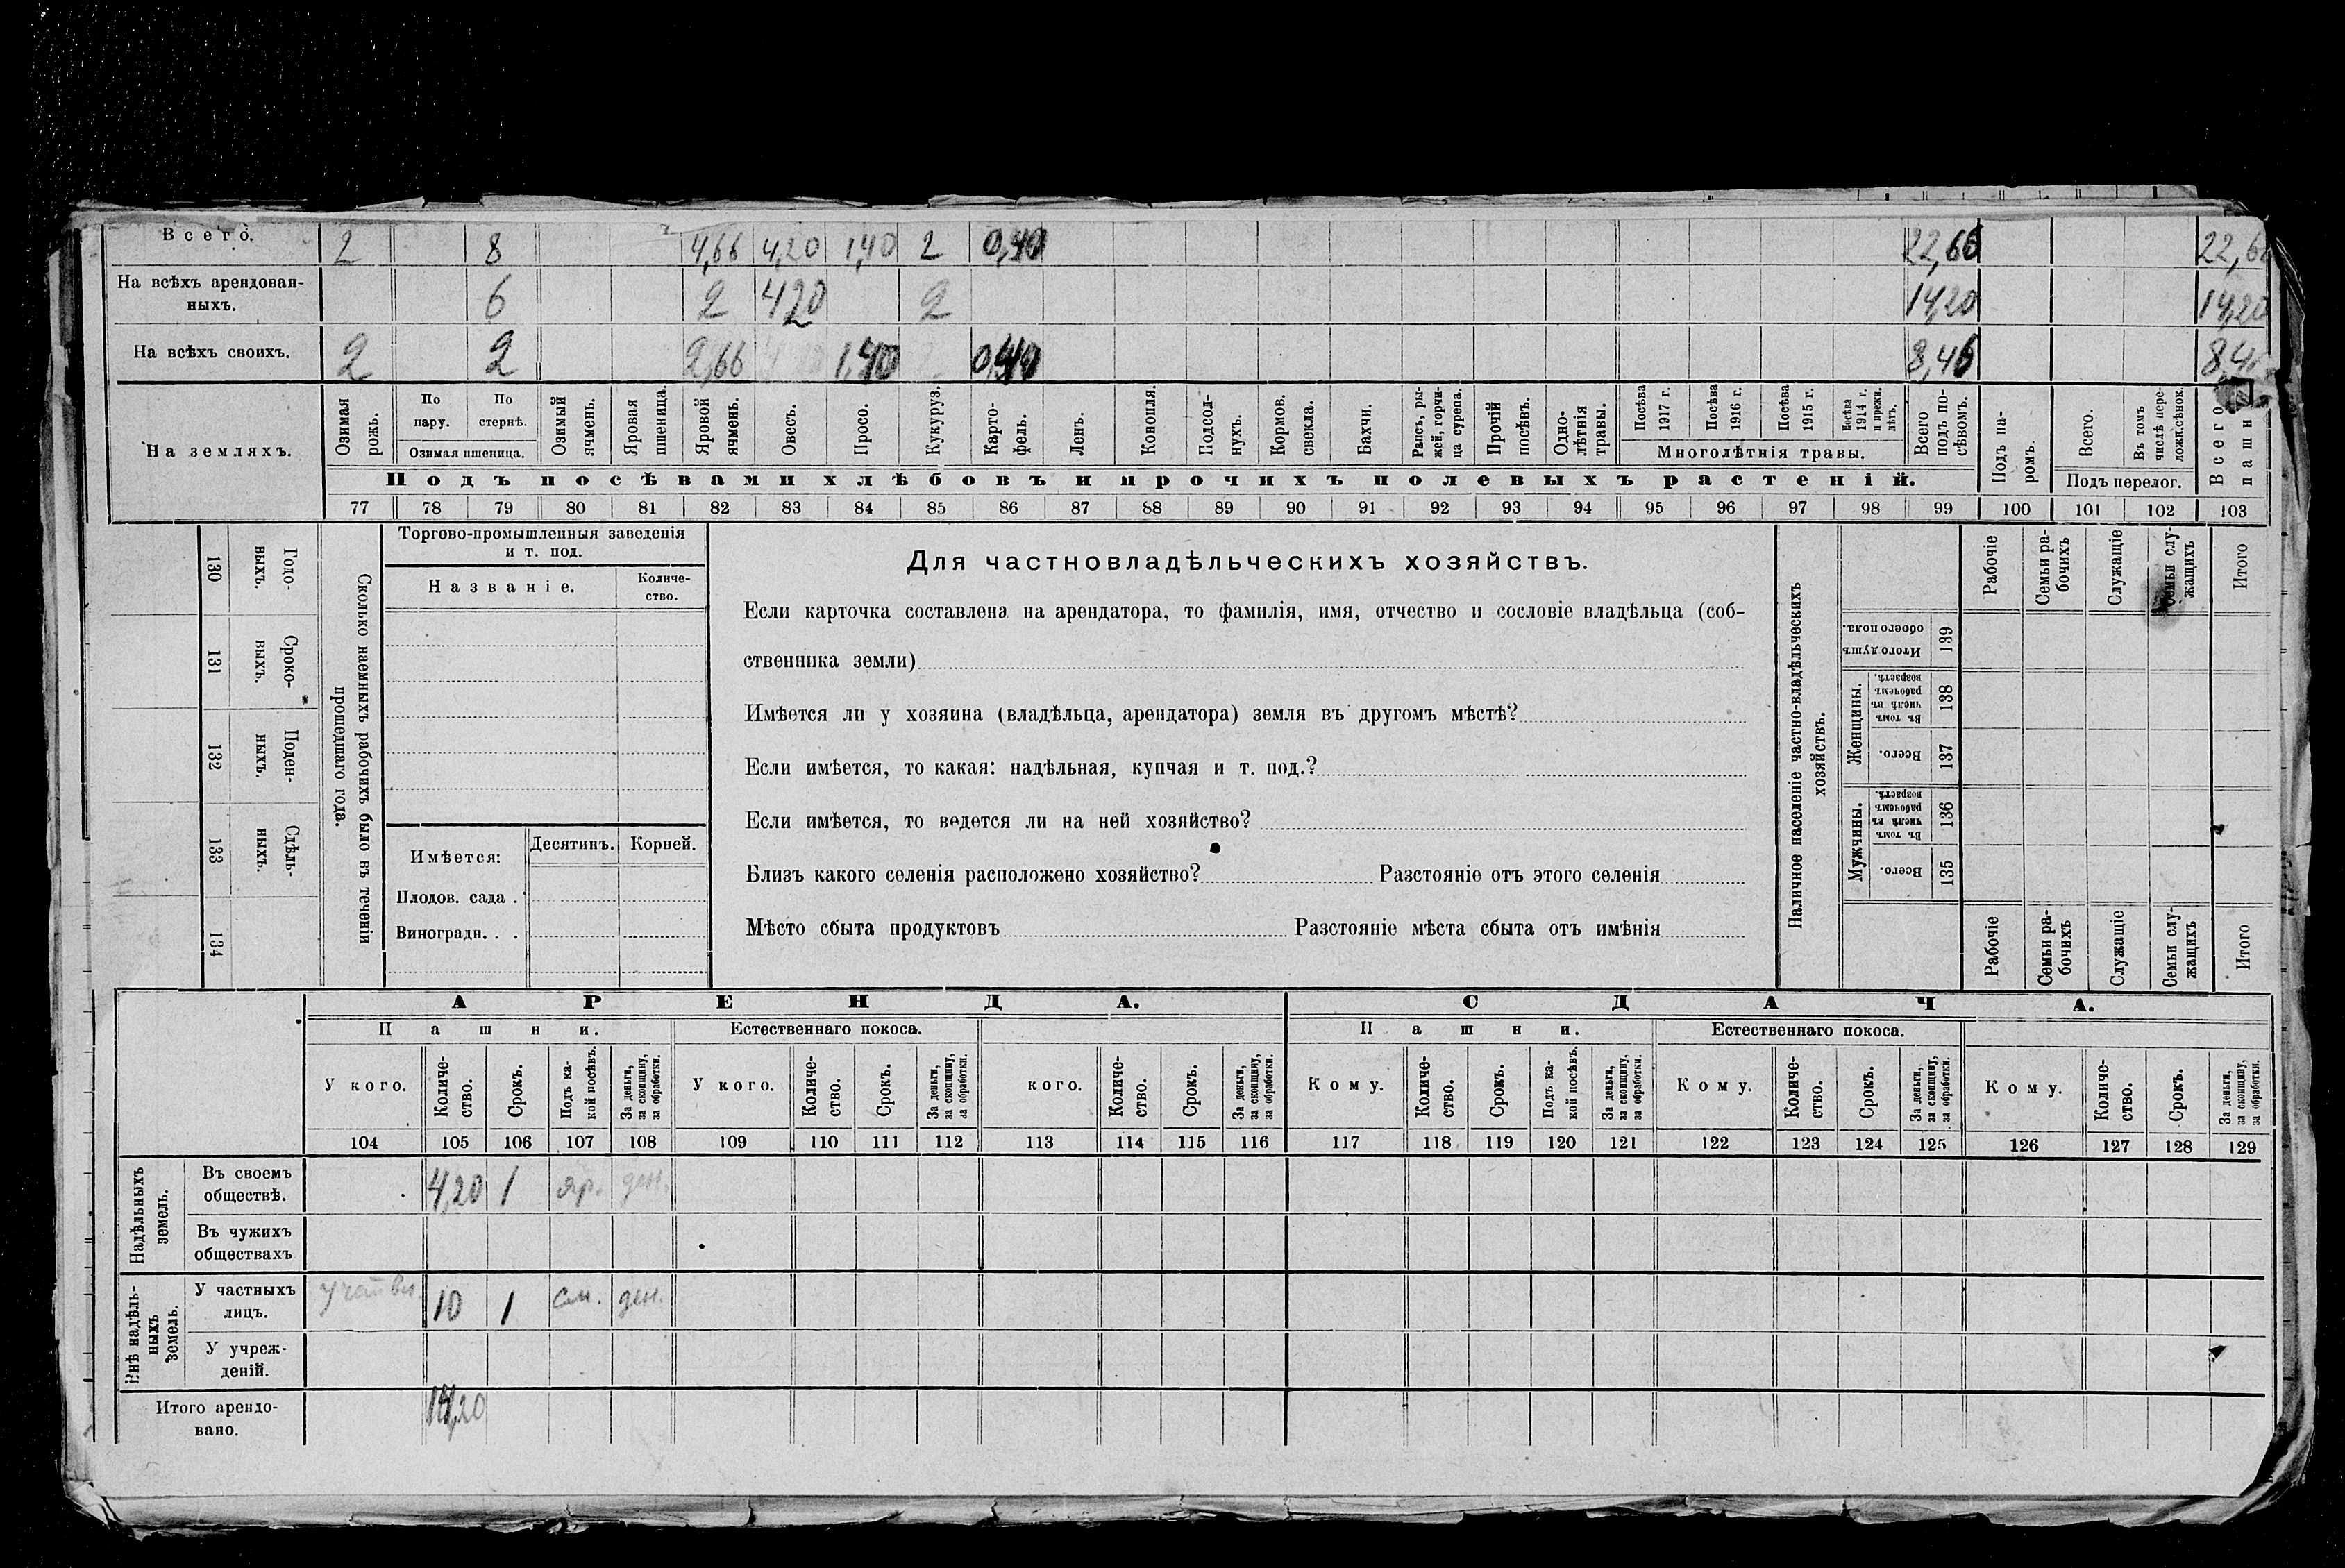 Всего. 2 8 4,66 4,20 1,40 2 0,40 22,66 22,6
На всѣхъ арендован-
ныхъ. 6 2 4,20 2 14,20 14,20
На всѣхъ своихъ. 2 2 2,66 1,40 0,40 8,46 8,4
На земляхъ.
Озимая рожь.
По пару.
По стернѣ.
Озимая пшеница.
Озимый ячмень.
Яровая пшеница.
Яровой ячмень.
Овесъ.
Просо.
Кукуруз.
Карто-
фель.
Ленъ.
Конопля.
Подсол-
нухъ.
Кормов. свекла.
Бахчи.
Рапсъ, ры-
жей, горчи-
ца сурепа.
Прочій посѣвъ.
Одно-
лѣтнія травы.
Посѣва 1917 г.
Посѣва 1916 г.
Посѣва 1915 г.
Посѣва 1914 г. и прежн. лѣтъ.
Многолѣтнія травы.
Всего подъ по-
сѣвомъ.
Подъ па-
ромъ.
Всего.
Въ томъ числѣ пере-
ложн.сѣнок.
Подъ перелог.
Всего пашн
Подъ посѣвами хлѣбовъ и прочихъ полевыхъ растеній.
77 78 79 80 81 82 83 84 85 86 87 88 89 90 91 92 93 94 95 96 97 98 99 100 101 102 103
130 Годо-
ныхъ.
131 Сроко-
ныхъ.
132 Поден-
ныхъ.
133 Сдѣль-
ныхъ.
134
Сколько наемныхъ рабочихъ было въ теченіи
прошедшаго года.
Торгово-промышленныя заведенія
и т. под.
Названіе.
Количе-
ство.
Имѣется:
Десятинъ. Корней.
Плодов. сада .
Виноградн. . .
Для частновладѣльческихъ хозяйствъ.
Если карточка составлена на арендатора, то фамилія, имя, отчество и сословіе владѣльца (соб-
ственника земли)
Имѣется ли у хозяина (владѣльца, арендатора) земля въ другомъ мѣстѣ?
Если имѣется, то какая: надѣльная, купчая и т. под.?
Если имѣется, то ведется ли на ней хозяйство?
Близъ какого селенія расположено хозяйство? Разстояніе отъ этого селенія
Мѣсто сбыта продуктовъ Разстояніе мѣста сбыта отъ имѣнія
Наличное населеніе частно-владѣльческихъ
хозяйствъ.
Рабочіе
Семьи ра-
бочихъ
Служащіе
Семьи слу-
жащихъ
Итого
Итого душъ обоего пола. 139
Женщины.
Въ томъ числѣ въ рабочемъ возрастѣ. 138
Всего. 137
Мужчины.
Въ томъ числѣ въ рабочемъ возрастѣ. 136
Всего. 135
Рабочіе
Семьи ра-
бочихъ
Служащіе
Семьи слу-
жащихъ
Итого
АРЕНДА. СДАЧА.
Пашни. Естественнаго покоса. Пашни. Естественнаго покоса.
У кого.
Количе-
ство.
Срокъ.
Подъ ка-
кой посѣвъ.
За деньги, за скопщину, за обработки.
У кого.
Количе-
ство.
Срокъ.
За деньги, за скопщину, за обработки.
кого.
Количе-
ство.
Срокъ.
За деньги, за скопщину, за обработки.
Кому.
Количе-
ство.
Срокъ.
Подъ ка-
кой посѣвъ.
За деньги, за скопщину, за обработки.
Кому.
Количе-
ство.
Срокъ.
За деньги, за скопщину, за обработки.
Кому.
Количе-
ство.
Срокъ.
За деньги, за скопщину, за обработки.
104 105 106 107 108 109 110 111 112 113 114 115 116 117 118 119 120 121 122 123 124 125 126 127 128 129
Надѣльныхъ
земель.
Въ своемъ
обществѣ. 4,20 1 яр. ден.
Въ чужихъ
обществахъ
Внѣ надѣль-
ныхъ
земель.
У частныхъ
лицъ. 10 1 см. ден.
У учреж-
деній.
Итого арендо-
вано. 14,20